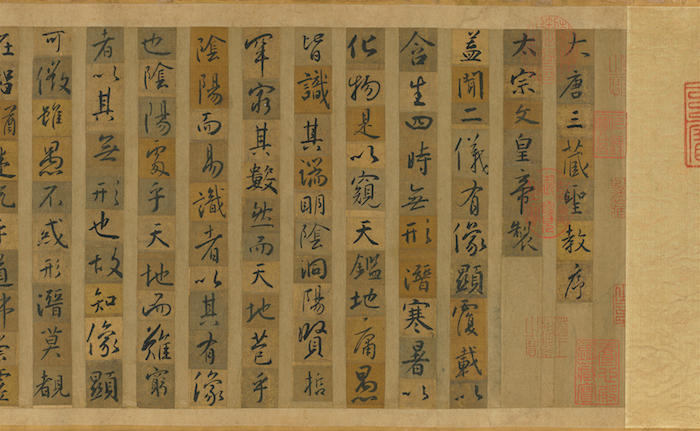 大唐三藏聖教序
太宗文皇帝製
蓋聞二儀有像顯覆載以
含生四時無形潛寒暑以
化物是以窺天鑑地庸愚
皆識其端明陰洞陽賢哲
罕窮其數然而天地苞乎
陰陽而易識者以其有像
也陰陽處乎天地而難窮
者以其無形也故知像顯
可徵雖愚不惑形潛莫覩
在智猶迷況乎